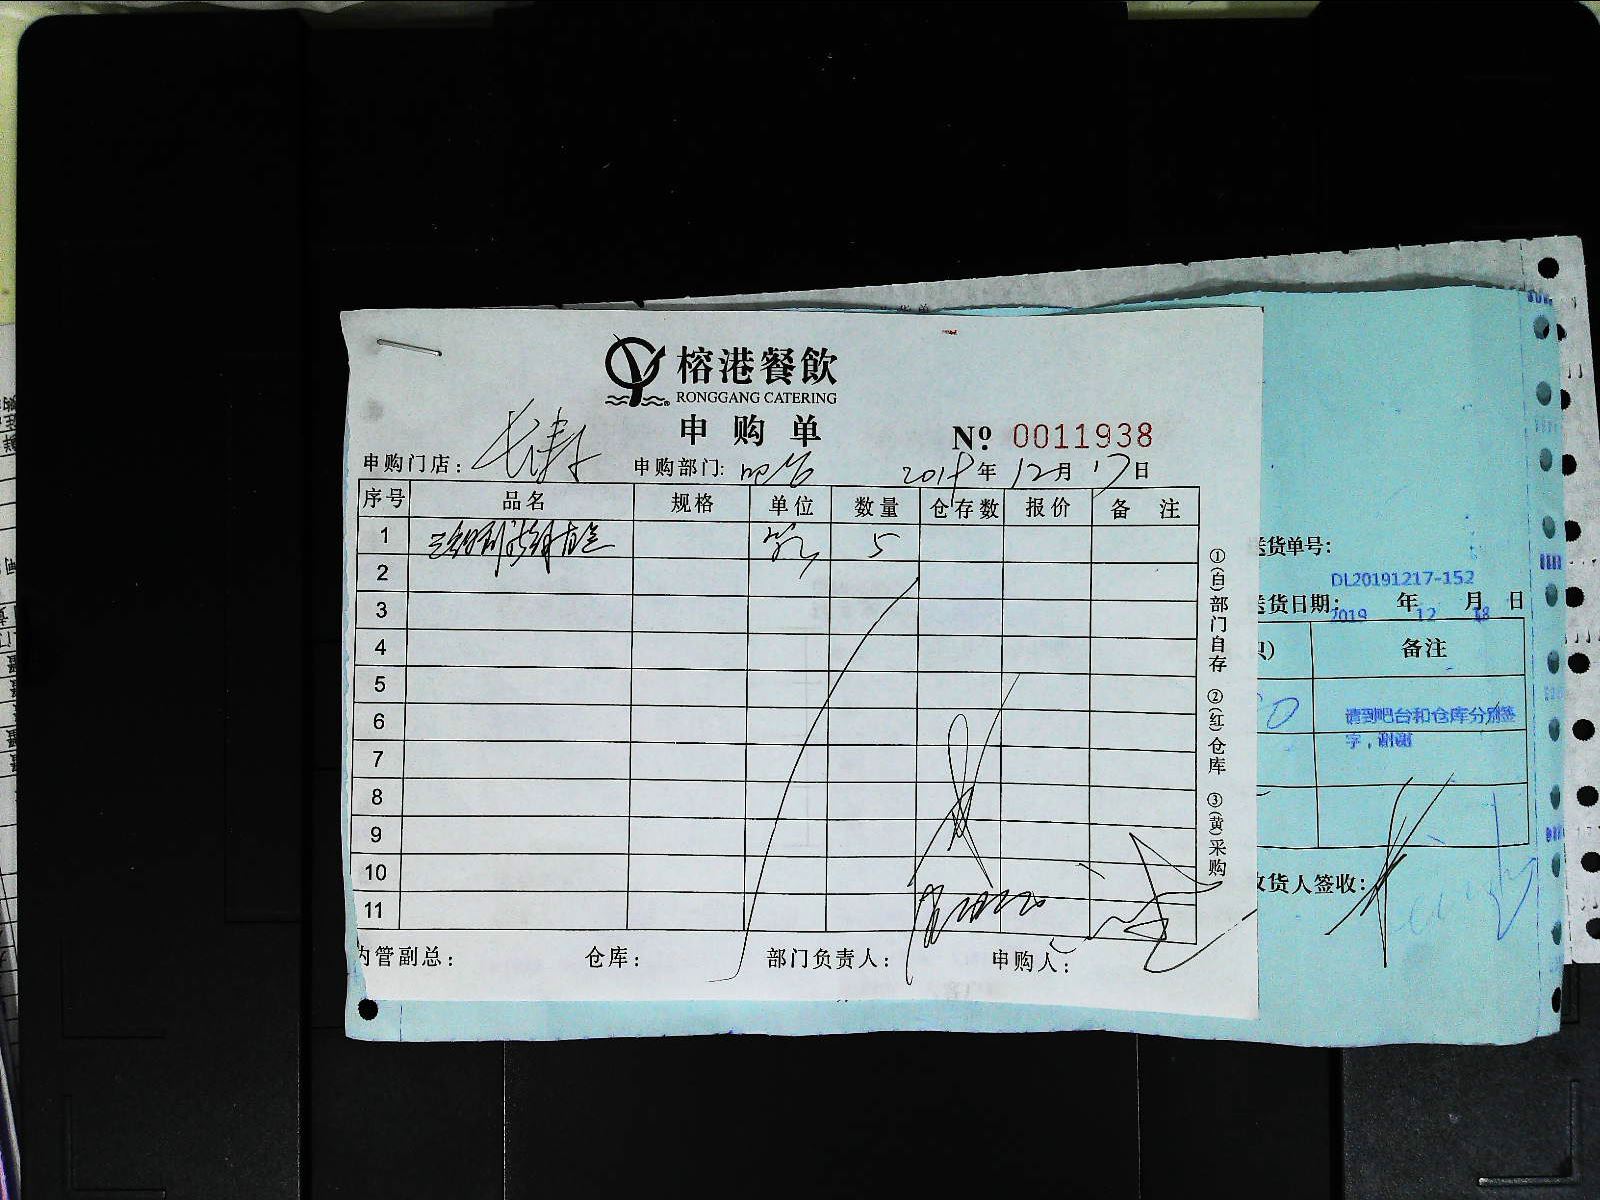 榕港餐飲
RONGGANG CATERING
申购单
№ 0011938
申购门店: 长寿
申购部门: 吧台 2019年12月17日
序号 品名 规格 单位 数量 仓存数 报价 备注
1 5
2
3
4
5
6
7
8
9
10
11
内管副总: 仓库: 部门负责人: 申购人:
①(白)部门自存 ②(红)仓库 ③(黄)采购
送货单号:
DL20191217-152
送货日期: 2019年12月18日
备注
请到吧台和仓库分别签
字,谢谢
收货人签收: